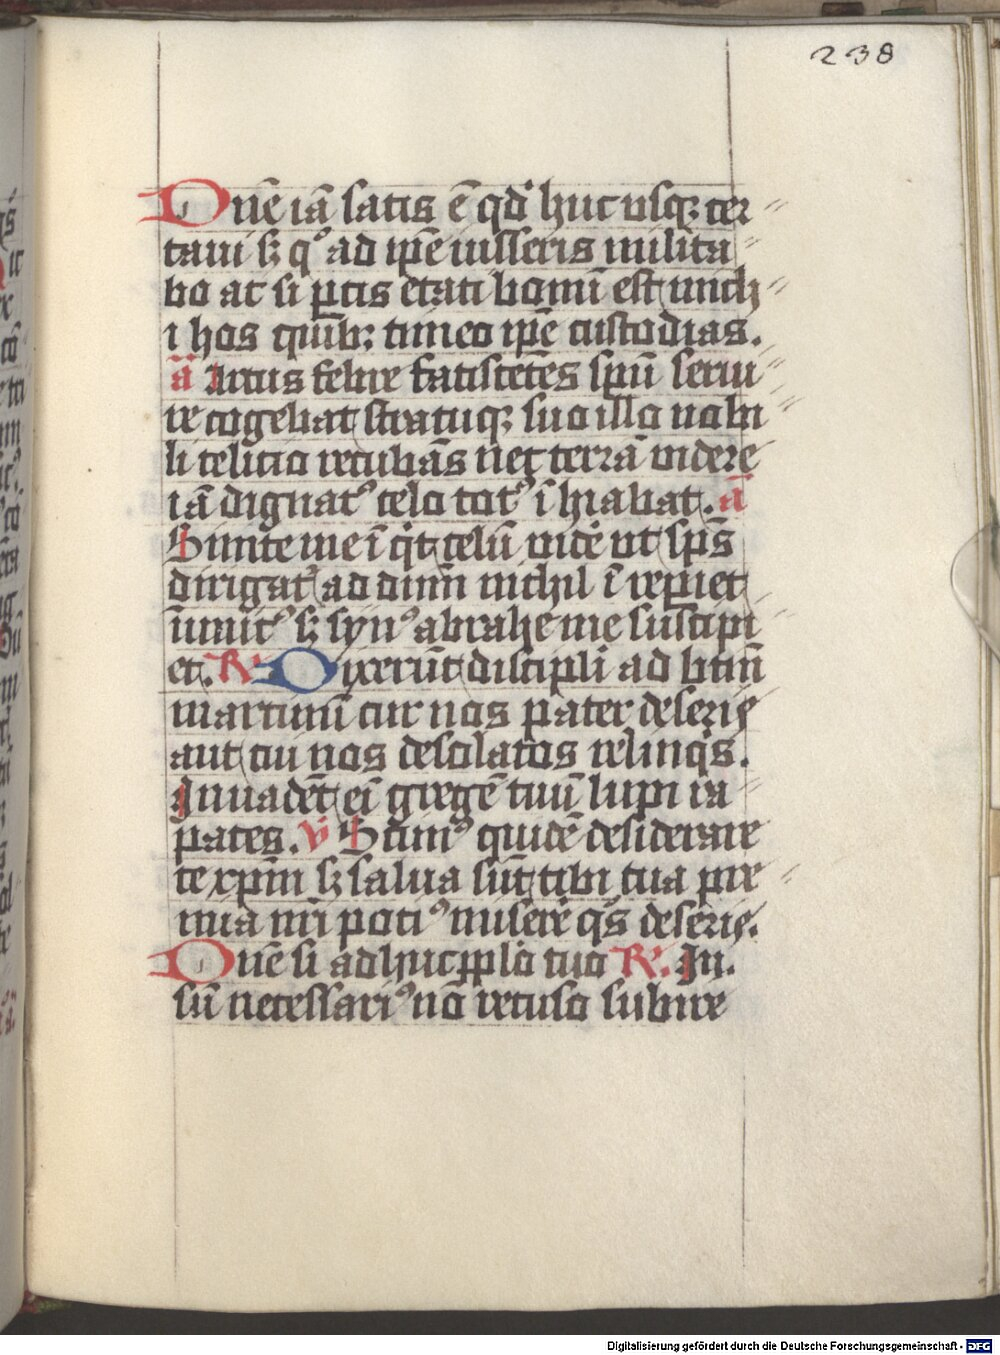 238
Dn̄e iā satis ē qd̕ huc usqꝫ cer
taui sꝫ qͦ ad ip̄e iusseris milita
bo at si ꝑcis etati bonuī est mich
i hos quibꝫ timeo ip̄e custodias.
an̄ Artus febre fatiscētes spū serui
re cogebat stratuqꝫ suo illo nobi
li cilicio recubās nec terrā videre
iā dignatꝰ celo totꝰ īhiabat. an̄
Sinite me īqͥt celū vidē̕ ut sp̄s
dirigat̕ ad dn̄m nichil ī me repiet
inimicꝰ sꝫ synꝰ abrahe me suscipi
et. R̕ Dixerūt discipli̕ ad btm̄
martinū cur nos pater deseris
aut cui nos desolatos relinqͥs.
Inuadēt ei̅ gregē tuū lupi ra
paces. v̕ Scimꝰ quidē desiderare
te xp̄m sꝫ salua sūt tibi tua pre
mia nr̄i potiꝰ miserē̕ qͥs deseris.
Dn̄e si adhuc pplō tuo R̕. In.
sū necessariꝰ nō recuso subire
Digitalisierung gefördert durch die Deutsche Forschungsgemeinschaft - DFG